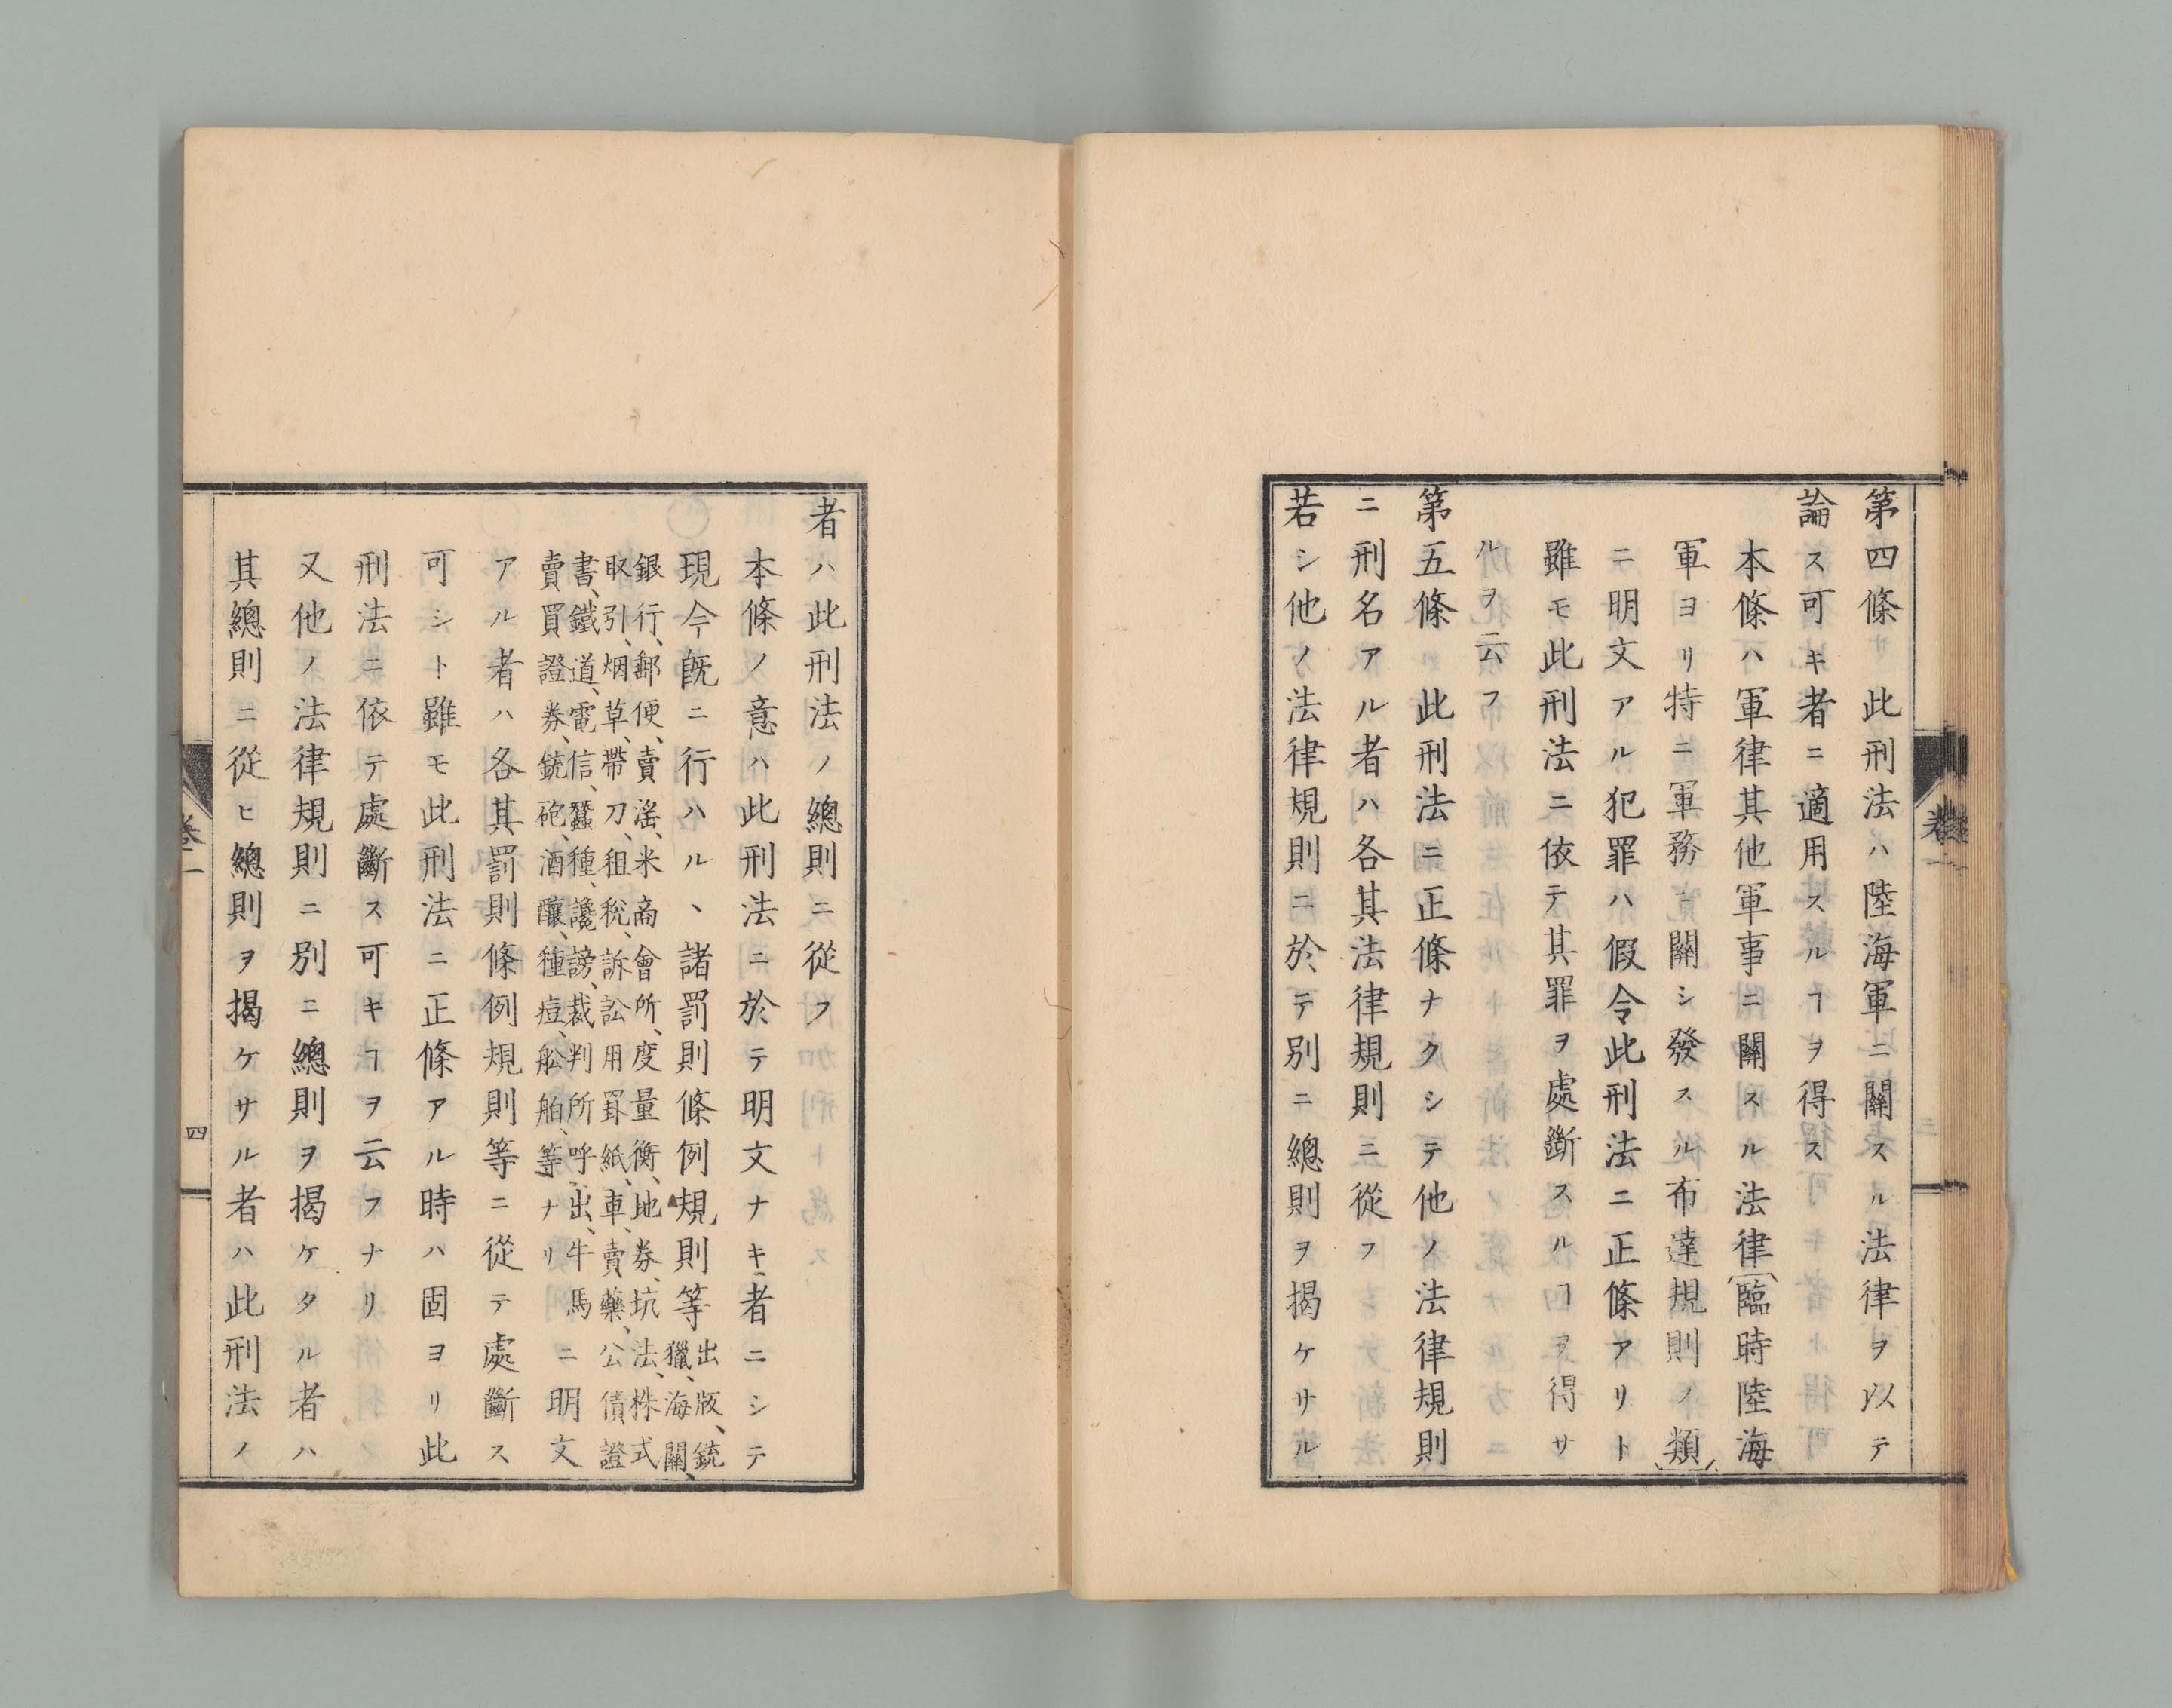 第四條　此刑法ハ陸海軍ニ關スル法律ヲ以テ
論ス可キ者ニ適用スルヿヲ得ス
本條ハ軍律其他軍事ニ關スル法律(臨時陸海
軍ヨリ特ニ軍務ニ關シ發スル布達規則ノ類)
ニ明文アル犯罪ハ假令此刑法ニ正條アリト
雖モ此刑法ニ依テ其罪ヲ處斷スルヿヲ得サ
ルヲ云フ
第五條　此刑法ニ正條ナクシテ他ノ法律規則
ニ刑名アル者ハ各其法律規則ニ從フ
若シ他ノ法律規則ニ於テ別ニ總則ヲ揭ケサル
卷一
三
者ハ此刑法ノ總則ニ從フ
本條ノ意ハ此刑法ニ於テ明文ナキ者ニシテ
現今旣ニ行ハルヽ諸罰則條例規則等出版、銃
獵、海關、
銀行、郵便、賣滛、米商會所、度量衡、地券、坑法、株式
取引、烟草、帶刀、租稅、訴訟用罫紙、車、賣藥、公債證
書、鐵道、電信、蠶種、讒謗、裁判所呼出、牛馬
賣買證券、銃砲、酒釀、種痘、舩舶、等ナリニ明文
アル者ハ各其罰則條例規則等ニ從テ處斷ス
可シト雖モ此刑法ニ正條アル時ハ固ヨリ此
刑法ニ依テ處斷ス可キヿヲ云フナリ
又他ノ法律規則ニ別ニ總則ヲ揭ケタル者ハ
其總則ニ從ヒ總則ヲ揭ケサル者ハ此刑法ノ
卷一
四